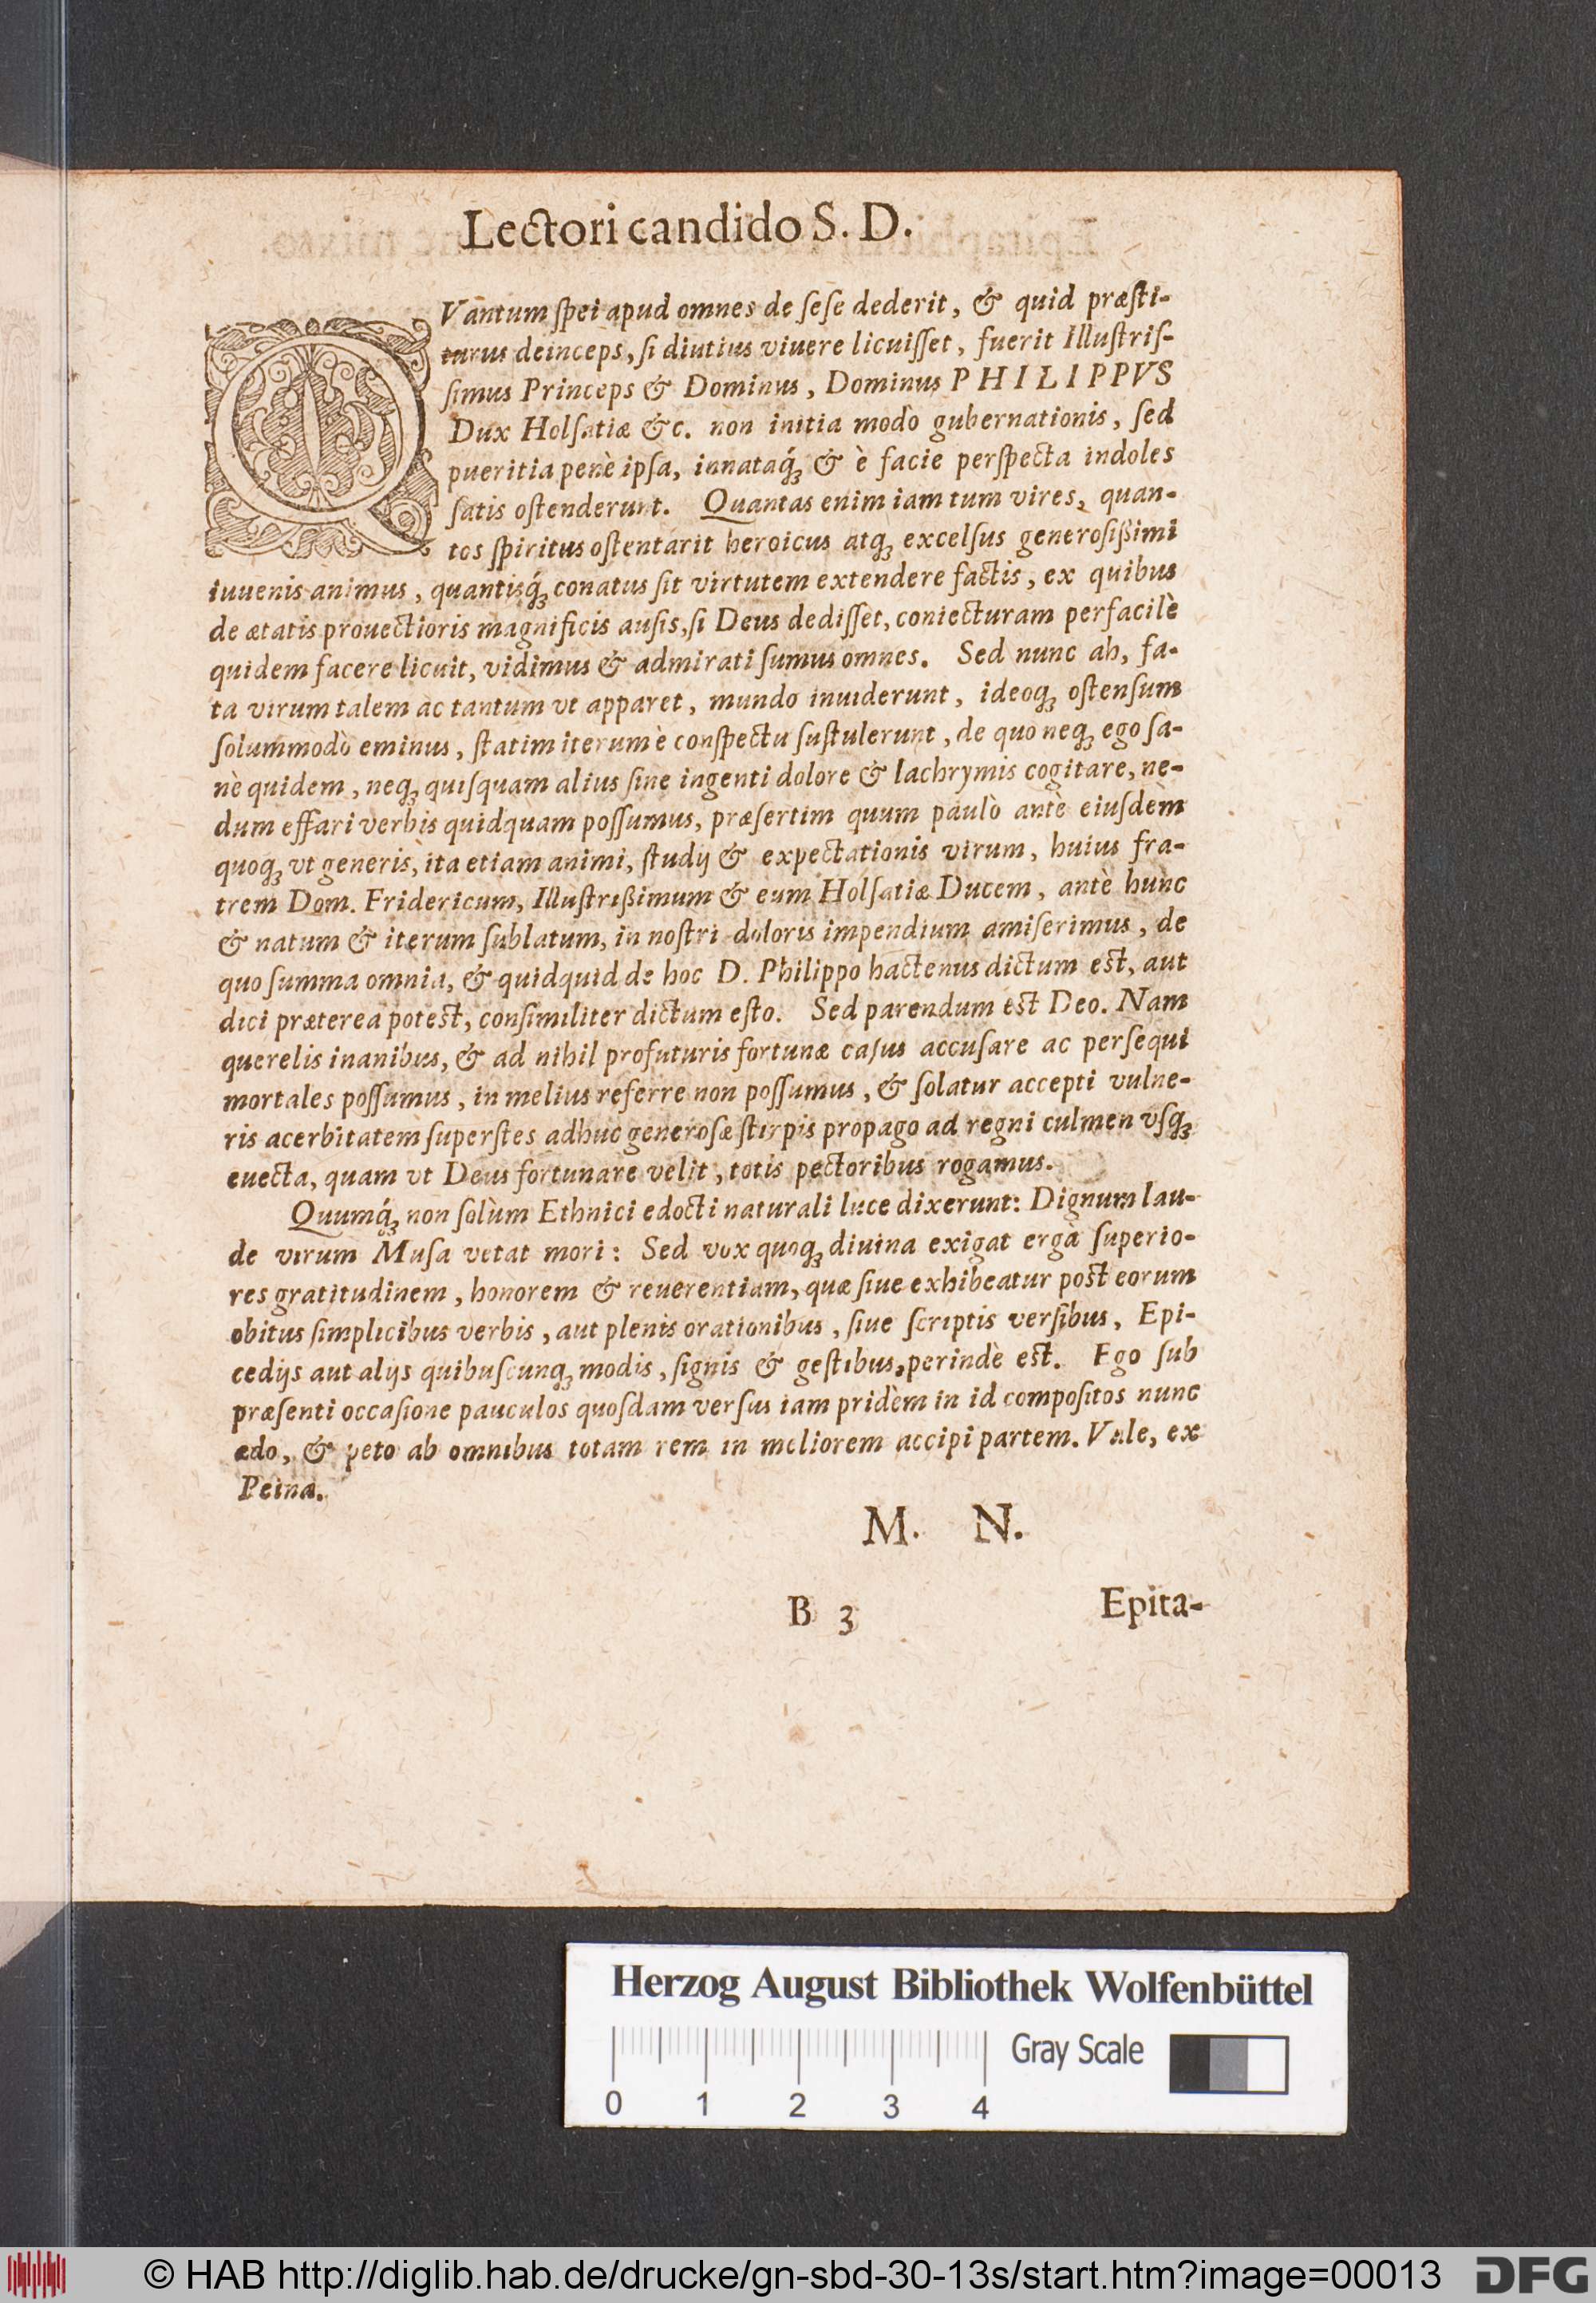 Lectori candido S. D.
QVantum ſpei apud omnes de ſeſe dederit, & quid præſti-
turus deinceps, ſi diutius viuere licuiſſet, fuerit Illuſtriſ-
ſimus Princeps & Dominus, Dominus PHILIPPVS
Dux Holſatiæ &c. non initia modo gubernationis, ſed
pueritia penè ipſa, innataq́ꝫ & è facie perſpecta indoles
ſatis oſtenderunt. Quantas enim iam tum vires, quan-
tos ſpiritus oſtentarit heroicus atqꝫ excelſus generoſißimi
iuuenis animus, quantisq́ꝫ conatus ſit virtutem extendere factis, ex quibus
de ætatis prouectioris magnificis auſis, ſi Deus dediſſet, coniecturam perfacilè
quidem facere licuit, vidimus & admirati ſumus omnes. Sed nunc ah, fa-
ta virum talem ac tantum vt apparet, mundo inuiderunt, ideoqꝫ oſtenſum
ſolummodò eminus, ſtatim iterum è conſpectu ſuſtulerunt, de quo neqꝫ ego ſa-
nè quidem, neqꝫ quiſquam alius ſine ingenti dolore & lachrymis cogitare, ne-
dum effari verbis quidquam poſſumus, præſertim quum paulò antè eiuſdèm
quoqꝫ vt generis, ita etiam animi, ſtudij & expectationis virum, huius fra-
trem Dom. Fridericum, Illuſtrißimum & eum Holſatiæ Ducem, antè hunc
& natum & iterum ſublatum, in noſtri doloris impendium amiſerimus, de
quo ſumma omnia, & quidquid de hoc D. Philippo hactenus dictum est, aut
dici præterea potest, conſimiliter dictum eſto. Sed parendum est Deo. Nam
querelis inanibus, & ad nihil profuturis fortunæ caſus accuſare ac perſequi
mortales poſſumus, in melius referre non poſſumus, & ſolatur accepti vulne-
ris acerbitatem ſuperſtes adhuc generoſæ ſtirpis propago ad regni culmen vſqꝫ
euecta, quam vt Deus fortunare velit, totis pectoribus rogamus.
Quumq́ꝫ non ſolùm Ethnici edocti naturali luce dixerunt: Dignum lau-
de virum Muſa vetat mori: Sed vox quoqꝫ diuina exigat ergà ſuperio-
res gratitudinem, honorem & reuerentiam, quæ ſiue exhibeatur post eorum
obitus ſimplicibus verbis, aut plenis orationibus, ſiue ſcriptis verſibus, Epi-
cedijs aut alijs quibuſcunqꝫ modis, ſignis & geſtibus, perindè est. Ego ſub
præſenti occaſione pauculos quoſdam verſus iam pridèm in id compoſitos nunc
ædo, & peto ab omnibus totam rem in meliorem accipi partem. Vale, ex
Peina.
M. N.
B 3 Epita-
Herzog August Bibliothek Wolfenbüttel
Gray Scale
0 1 2 3 4
© HAB http://diglib.hab.de/drucke/gn-sbd-30-13s/start.htm?image=00013 DFG